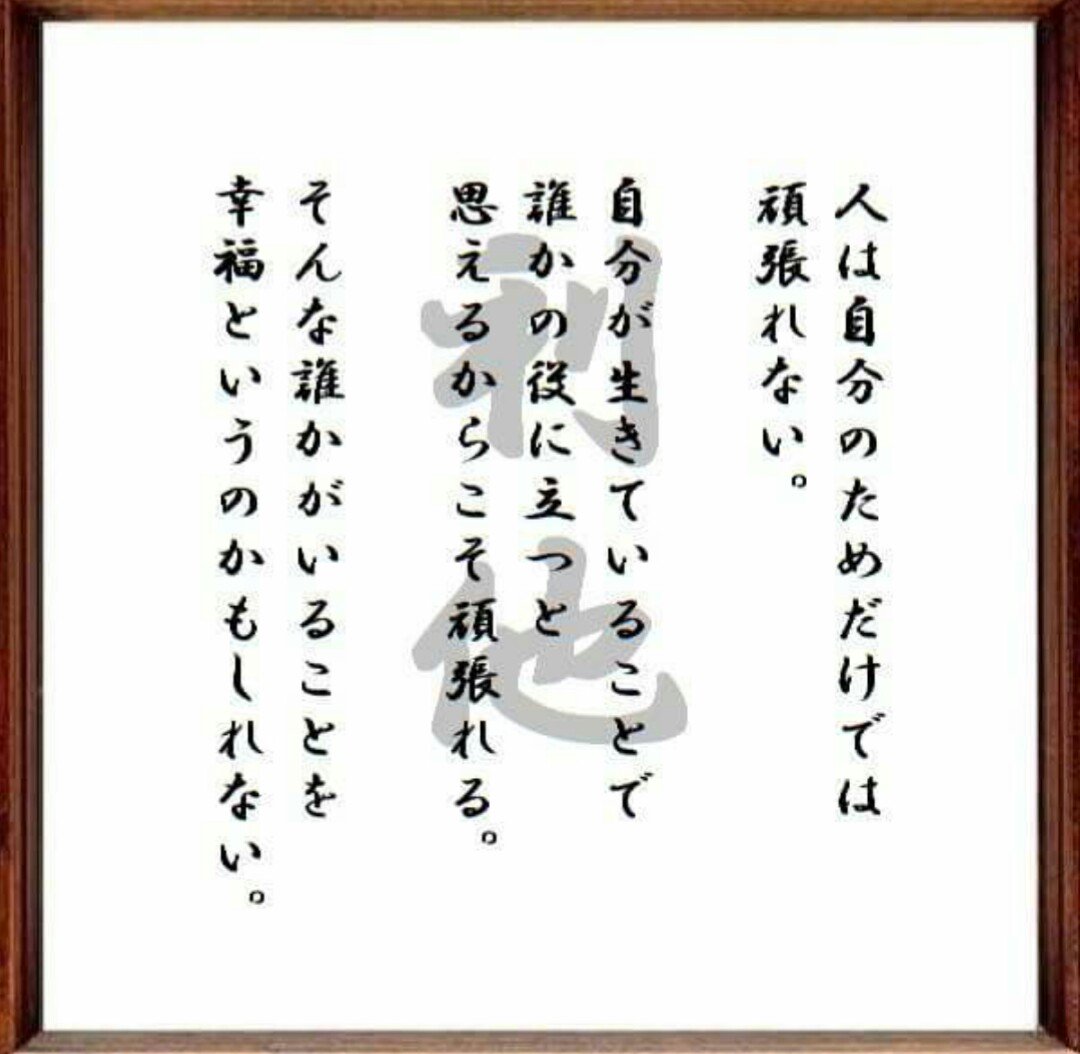 人は自分のためだけでは
頑張れない。
自分が生きていることで
誰かの役に立つと
思えるからこそ頑張れる。
そんな誰かがいることを
幸福というのかもしれない。
利他